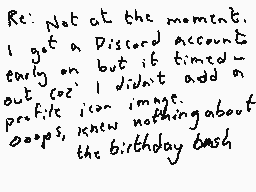 Re: Not at the moment.
I got a Discord account
early on but it timed-
out coz' I didn't add a
profile icon image.
Ooops, knew nothing about
the birthday bash